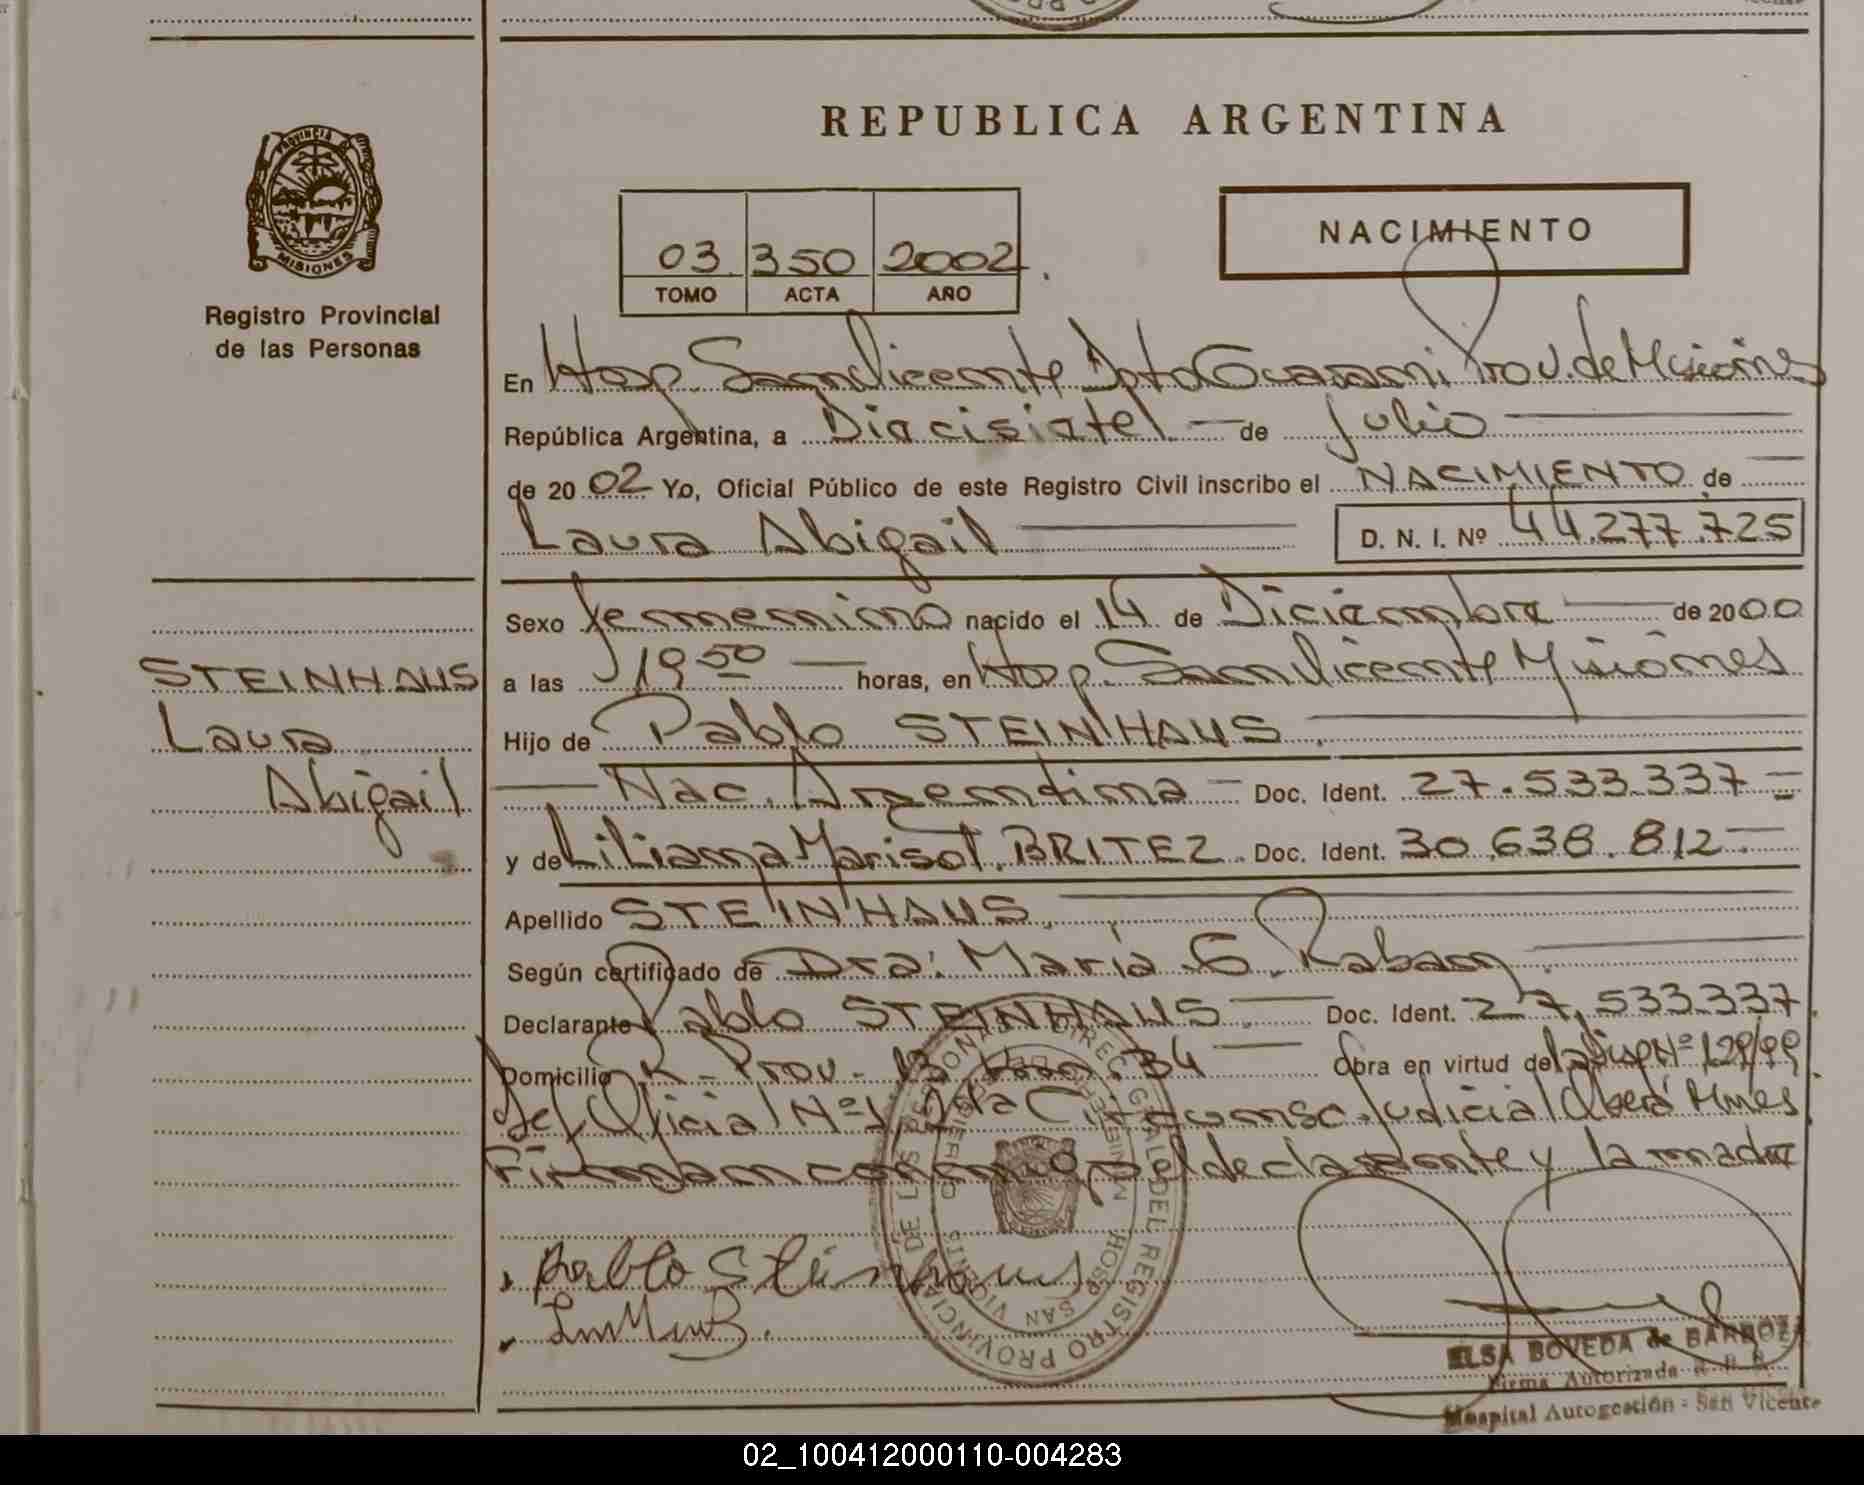 PROVINCIA DE
MISIONES
Registro Provincial
de las Personas
REPUBLICA ARGENTINA
03 350 2002
TOMO ACTA AÑO
NACIMIENTO
En Hosp. San Vicente Dpto Guarani Prov. de Misiones
República Argentina, a Diecisiete - de Julio
de 2002 Yo, Oficial Público de este Registro Civil inscribo el NACIMIENTO de
Laura Abigail D. N. I. Nº 44.277.725
Sexo femenino nacido el 14 de Diciembre de 2000
a las 19 50 horas, en Hosp. San Vicente Misiones
Hijo de Pablo STEINHAUS.
Nac. Argentina - Doc. Ident. 27.533.337
y de Liliana Marisol BRITEZ. Doc. Ident. 30.638.812
Apellido STEINHAUS
Según certificado de Dra. Maria G. Rabam
Declarante Pablo STEINHAUS. Doc. Ident. 27.533.337
Domicilio R. Prov. 13 Km. 34 Obra en virtud de la Disp Nº 129/99
Def. Oficial Nº 1, 2da Circunsc. Judicial Oberá Mnes
Firman conmigo el declarante y la madre
STEINHAUS
Laura
Abigail
Pablo Steinhaus
DIREC. GRAL. DEL REGISTRO PROVINCIAL DE LAS PERSONAS
HOSP. SAN VICENTE
ELSA BOVEDA de BARBOZA
Firma Autorizada R. P. P.
Hospital Autogestión - San Vicente
02_100412000110-004283